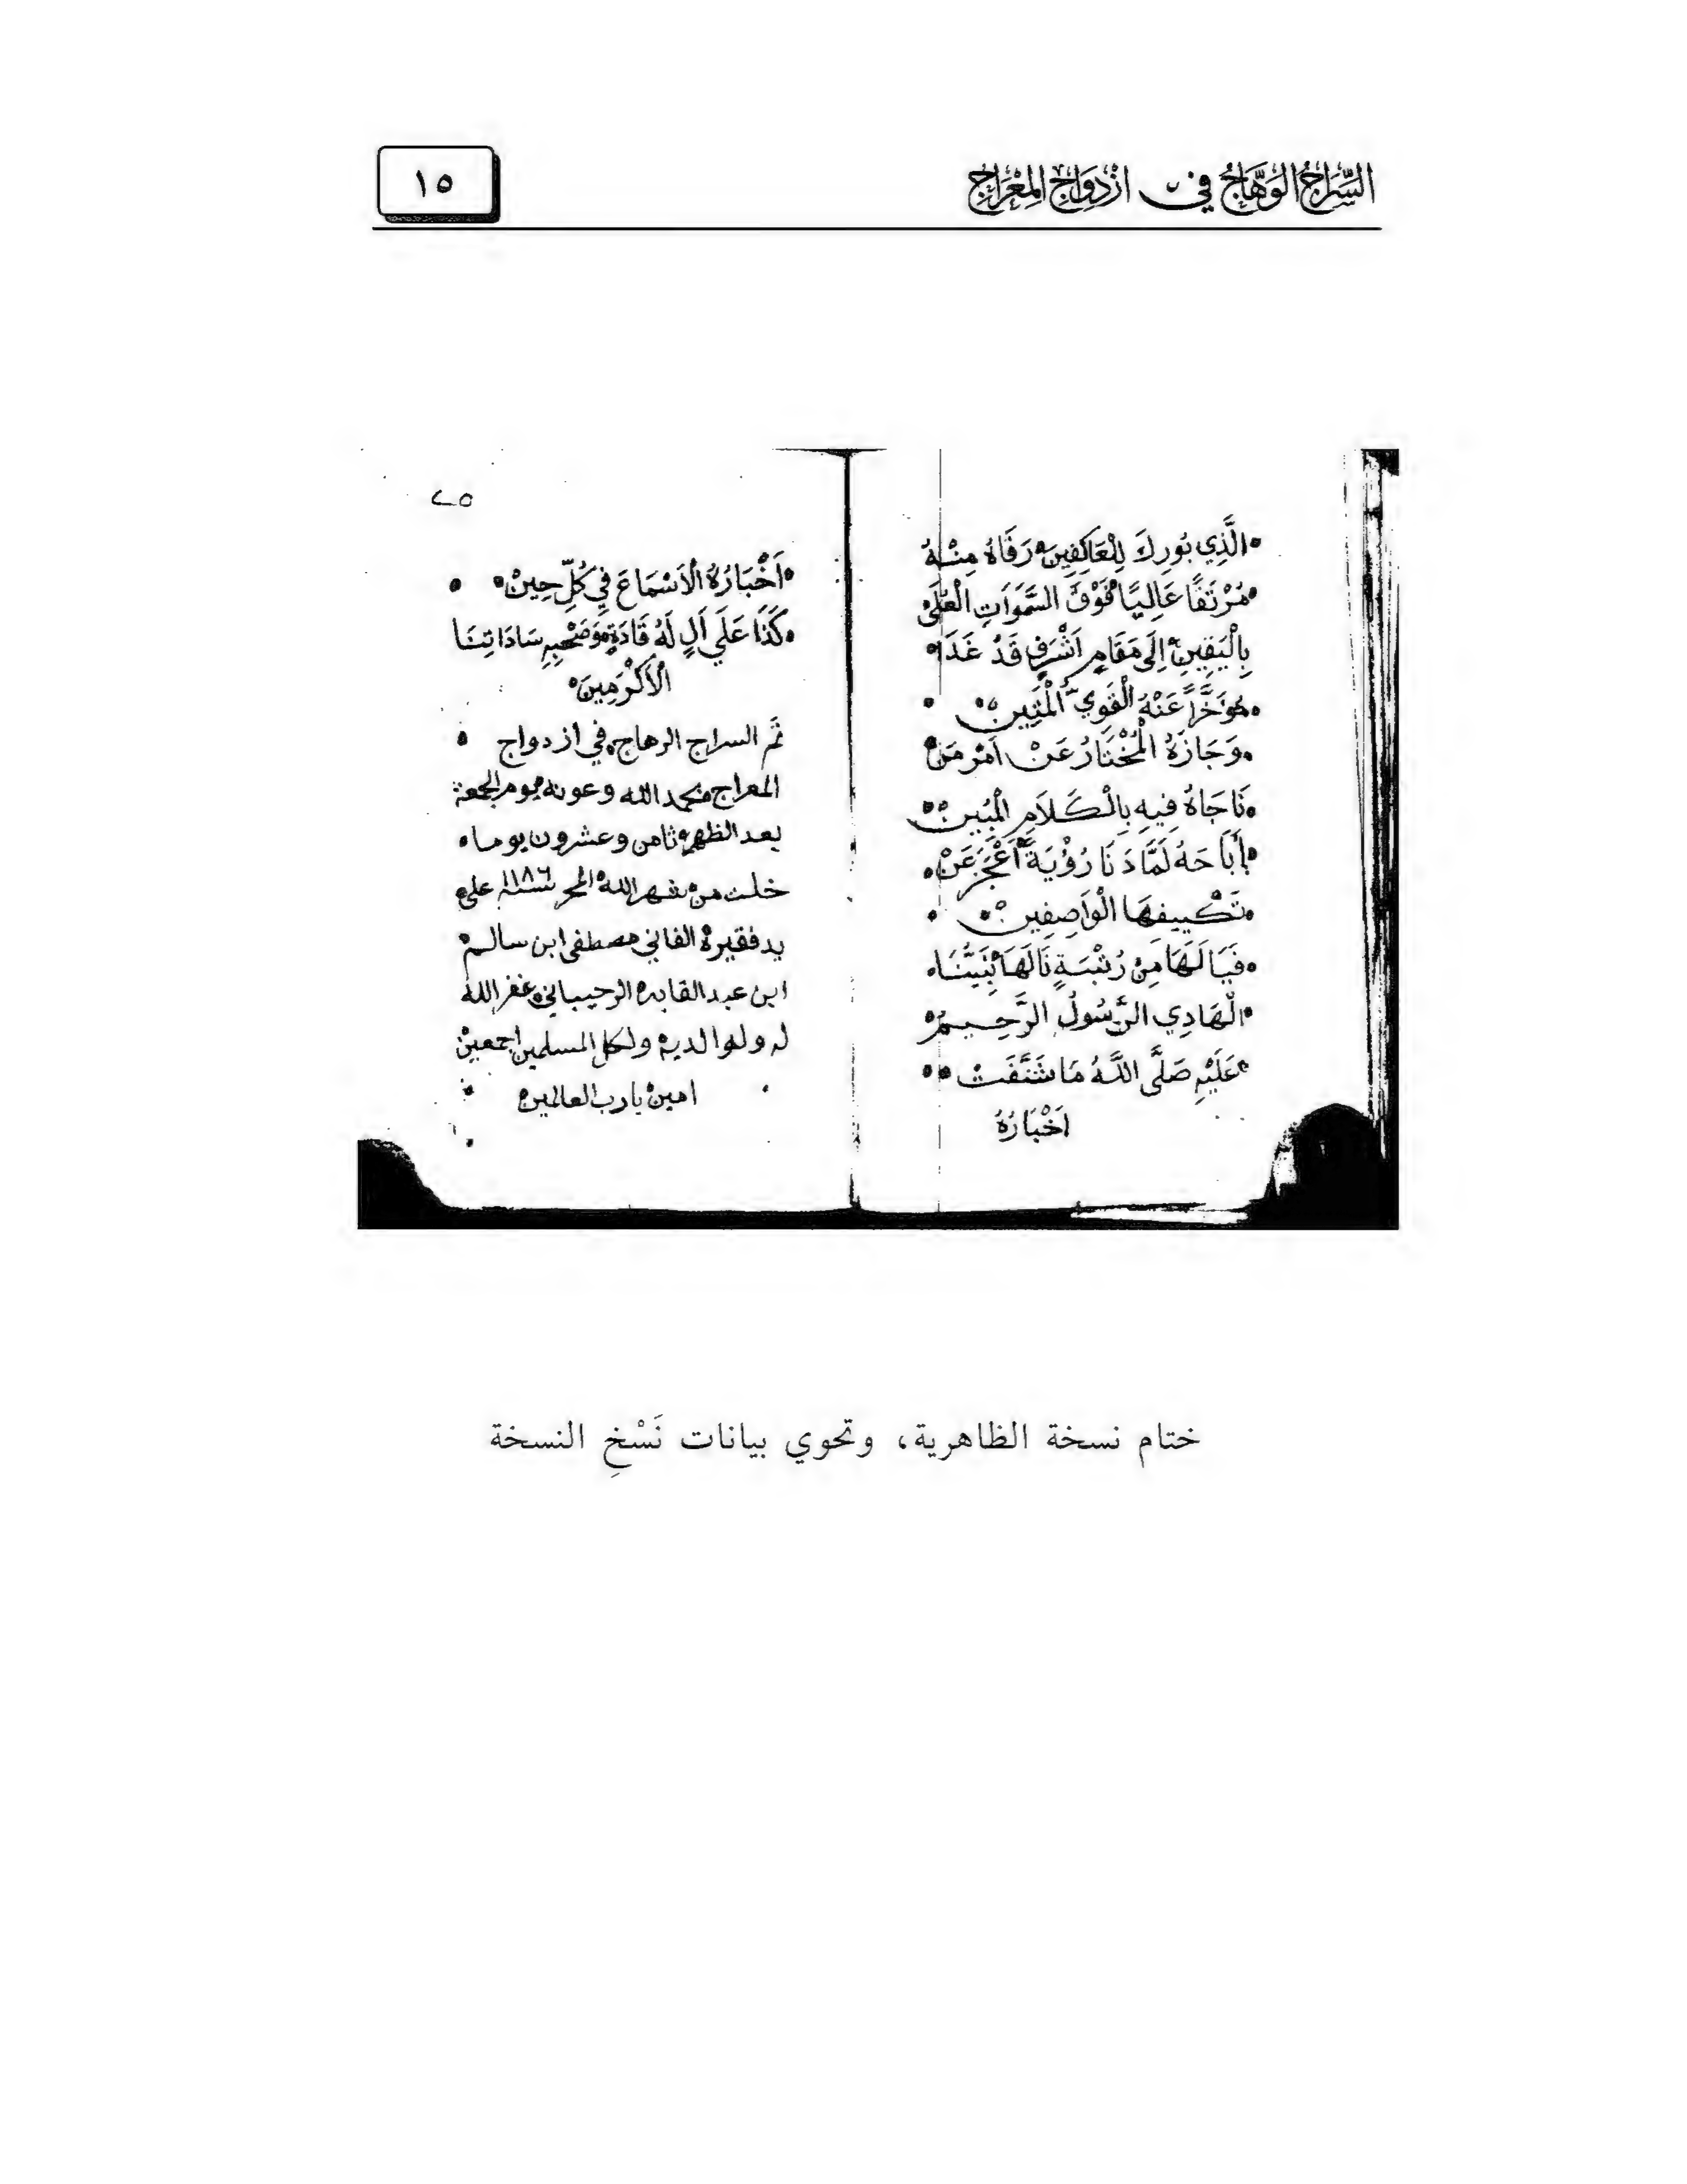 السِّرَاجُ الوَهَّاجُ فِي ازْدِوَاجِ المِعْرَاجِ
١٥
الَّذِي بُورِكَ لِلْعَاكِفِينَ رَقَاهُ مِنْهُ
مُرْتَقًا عَالِيًا فَوْقَ السَّمَوَاتِ الْعُلَى
بِالْيَقِينِ إِلَى مَقَامٍ أَشْرَفٍ قَدْ غَدَا
مُؤَخَّرًا عَنْهُ الْقَوِيُّ الْمَتِينْ
وَجَازَهُ الْمُخْتَارُ عَنْ أَمْرِ مَنْ
نَاجَاهُ فِيهِ بِالْكَلَامِ الْمُبِينْ
أَبَاحَهُ لَمَّا دَنَا رُؤْيَةً أَعْجَزَ عَنْ
تَكْيِيفِهَا الْوَاصِفِينْ
فَيَا لَهَا مِنْ رُتْبَةٍ نَالَهَا نَبِيُّنَا
الْهَادِي الرَّسُولُ الرَّحِيمْ
عَلَيْهِ صَلَّى اللَّهُ مَا شَنَّفَتْ
اَخْبَارُهُ
٢٥
اَخْبَارُهُ الْاَسْمَاعَ فِي كُلِّ حِينْ
كَذَا عَلَي اَلٍ لَهُ قَادَةٍ وَصَحْبِهِ سَادَاتِنَا
الْاَكْرَمِينَ
تَم السراج الوهاج في ازدواج
المعراج بحمد الله وعونه يوم الجمعة
بعد الظهر ثامن وعشرون يوما
خلت من شهر الله المحرم سنة ١١٨٦ على
يد فقيره الفاني مصطفى ابن سالم
ابن عبد القادر الرحيباني غفر الله
له ولوالديه ولكل المسلمين اجمعين
امين يارب العالمين
ختام نسخة الظاهرية، وتحوي بيانات نَسْخِ النسخة